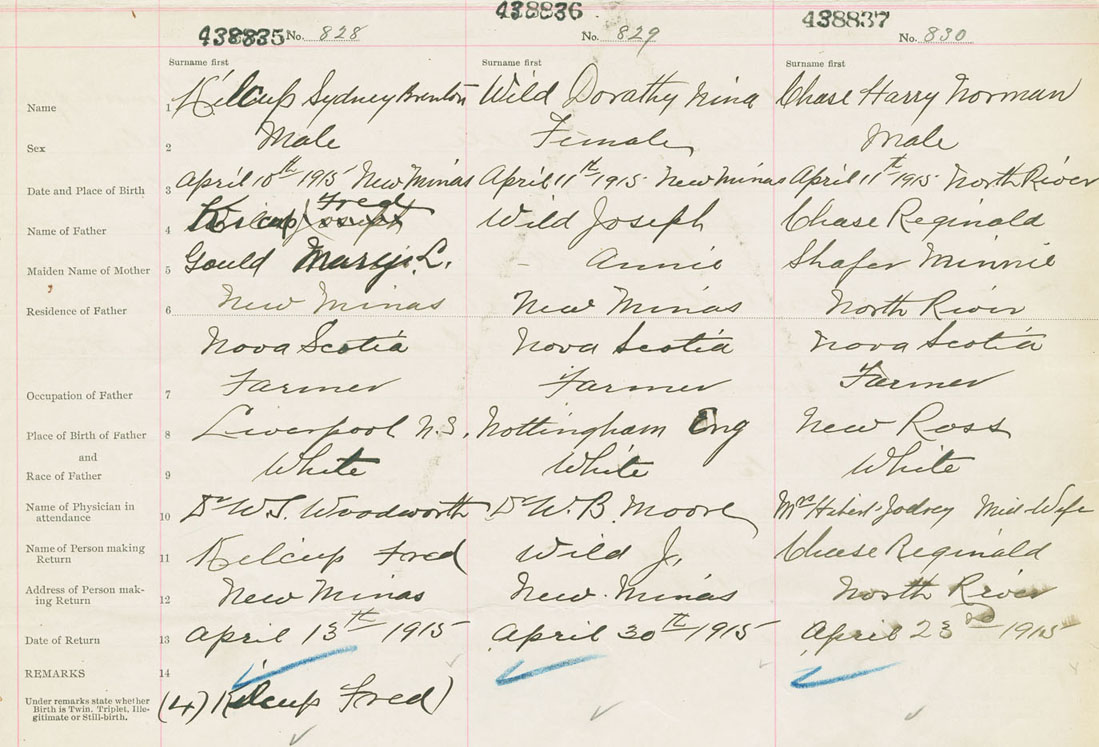 438835 No. 828 438836 No. 829 438837 No. 830
Surname first Surname first Surname first
Name 1 Kilcup Sydney Brenton Wild Dorathy Nina Chase Harry Norman
Sex 2 Male Female Male
Date and Place of Birth 3 April 10th 1915 New Minas April 11th 1915 New Minas April 11th 1915 North River
Name of Father 4 Kilcup Joseph Fred Wild Joseph Chase Reginald
Maiden Name of Mother 5 Gould Mary L. - Annie Shafer Minnie
Residence of Father 6 New Minas New Minas North River
Nova Scotia Nova Scotia Nova Scotia
Occupation of Father 7 Farmer Farmer Farmer
Place of Birth of Father 8 Liverpool N.S. Nottingham Eng New Ross
and
Race of Father 9 White White White
Name of Physician in
attendance 10 Dr W.S. Woodworth Dr W.B. Moore Mrs Hibert Jodrey Mid-Wife
Name of Person making
Return 11 Kilcup Fred Wild J. Chase Reginald
Address of Person mak-
ing Return 12 New Minas New Minas North River
Date of Return 13 April 13th 1915 April 30th 1915 April 23rd 1915
REMARKS 14
Under remarks state whether
Birth is Twin, Triplet, Ille-
gitimate or Still-birth.
(4) Kilcup Fred)